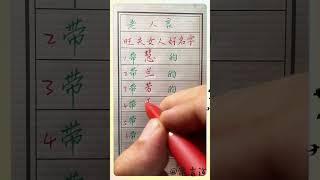 老人言
旺夫女人好名字
1带慧的
2带兰的
3带芳的
4带
5带
6带
2带
3带
4带